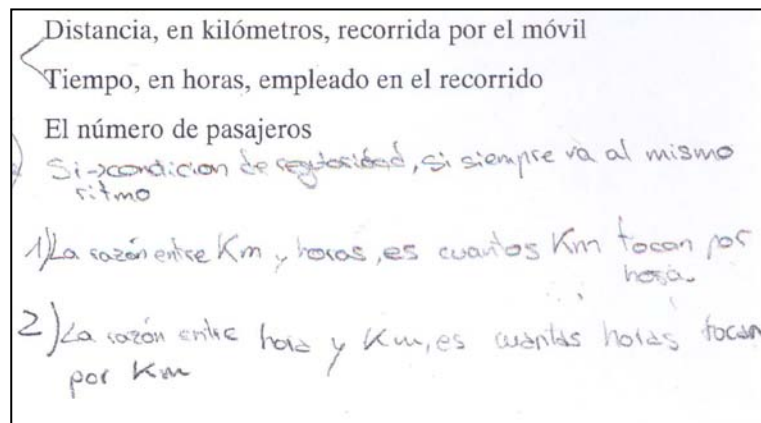 Distancia, en kilómetros, recorrida por el móvil
Tiempo, en horas, empleado en el recorrido
El número de pasajeros
Si->condicion de regularidad, si siempre va al mismo
ritmo
1) La razón entre Km y horas, es cuantos Km tocan por
hora
2) La razón entre hora y Km, es cuantas horas tocan
por Km